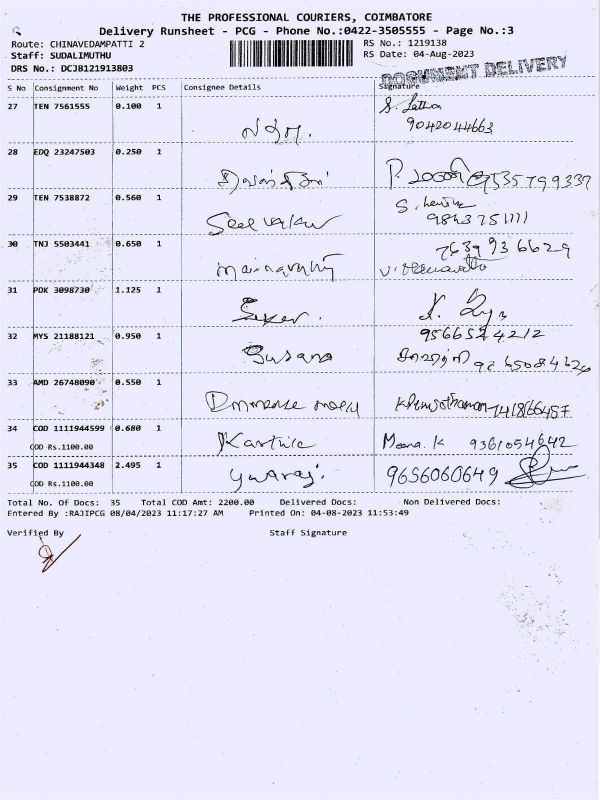 THE PROFESSIONAL COURIERS, COIMBATORE
Delivery Runsheet - PCG - Phone No.:0422-3505555 - Page No.:3
Route: CHINAVEDAMPATTI 2
RS No.: 1219138
Staff: SUDALIMUTHU
RS Date: 04-Aug-2023
DRS No.: DCJB121913803
DOCUMENT DELIVERY
S No Consignment No Weight PCS Consignee Details Signature
27 TEN 7561555 0.100 1 S. Latha
9042044663
28 EDQ 23247503 0.250 1
29 TEN 7538872 0.560 1
9843751111
30 TNJ 5503441 0.650 1 7639936629
31 PDK 3098730 1.125 1
32 MYS 21188121 0.950 1 9566524212
Susana
33 AMD 26748090 0.550 1
34 COD 1111944599 0.680 1
COD Rs.1100.00 Karthic Meena. K 9361054642
35 COD 1111944348 2.495 1 Yuvaraj. 9656060649
COD Rs.1100.00
Total No. Of Docs: 35 Total COD Amt: 2200.00 Delivered Docs: Non Delivered Docs:
Entered By :RAJIPCG 08/04/2023 11:17:27 AM Printed On: 04-08-2023 11:53:49
Verified By Staff Signature